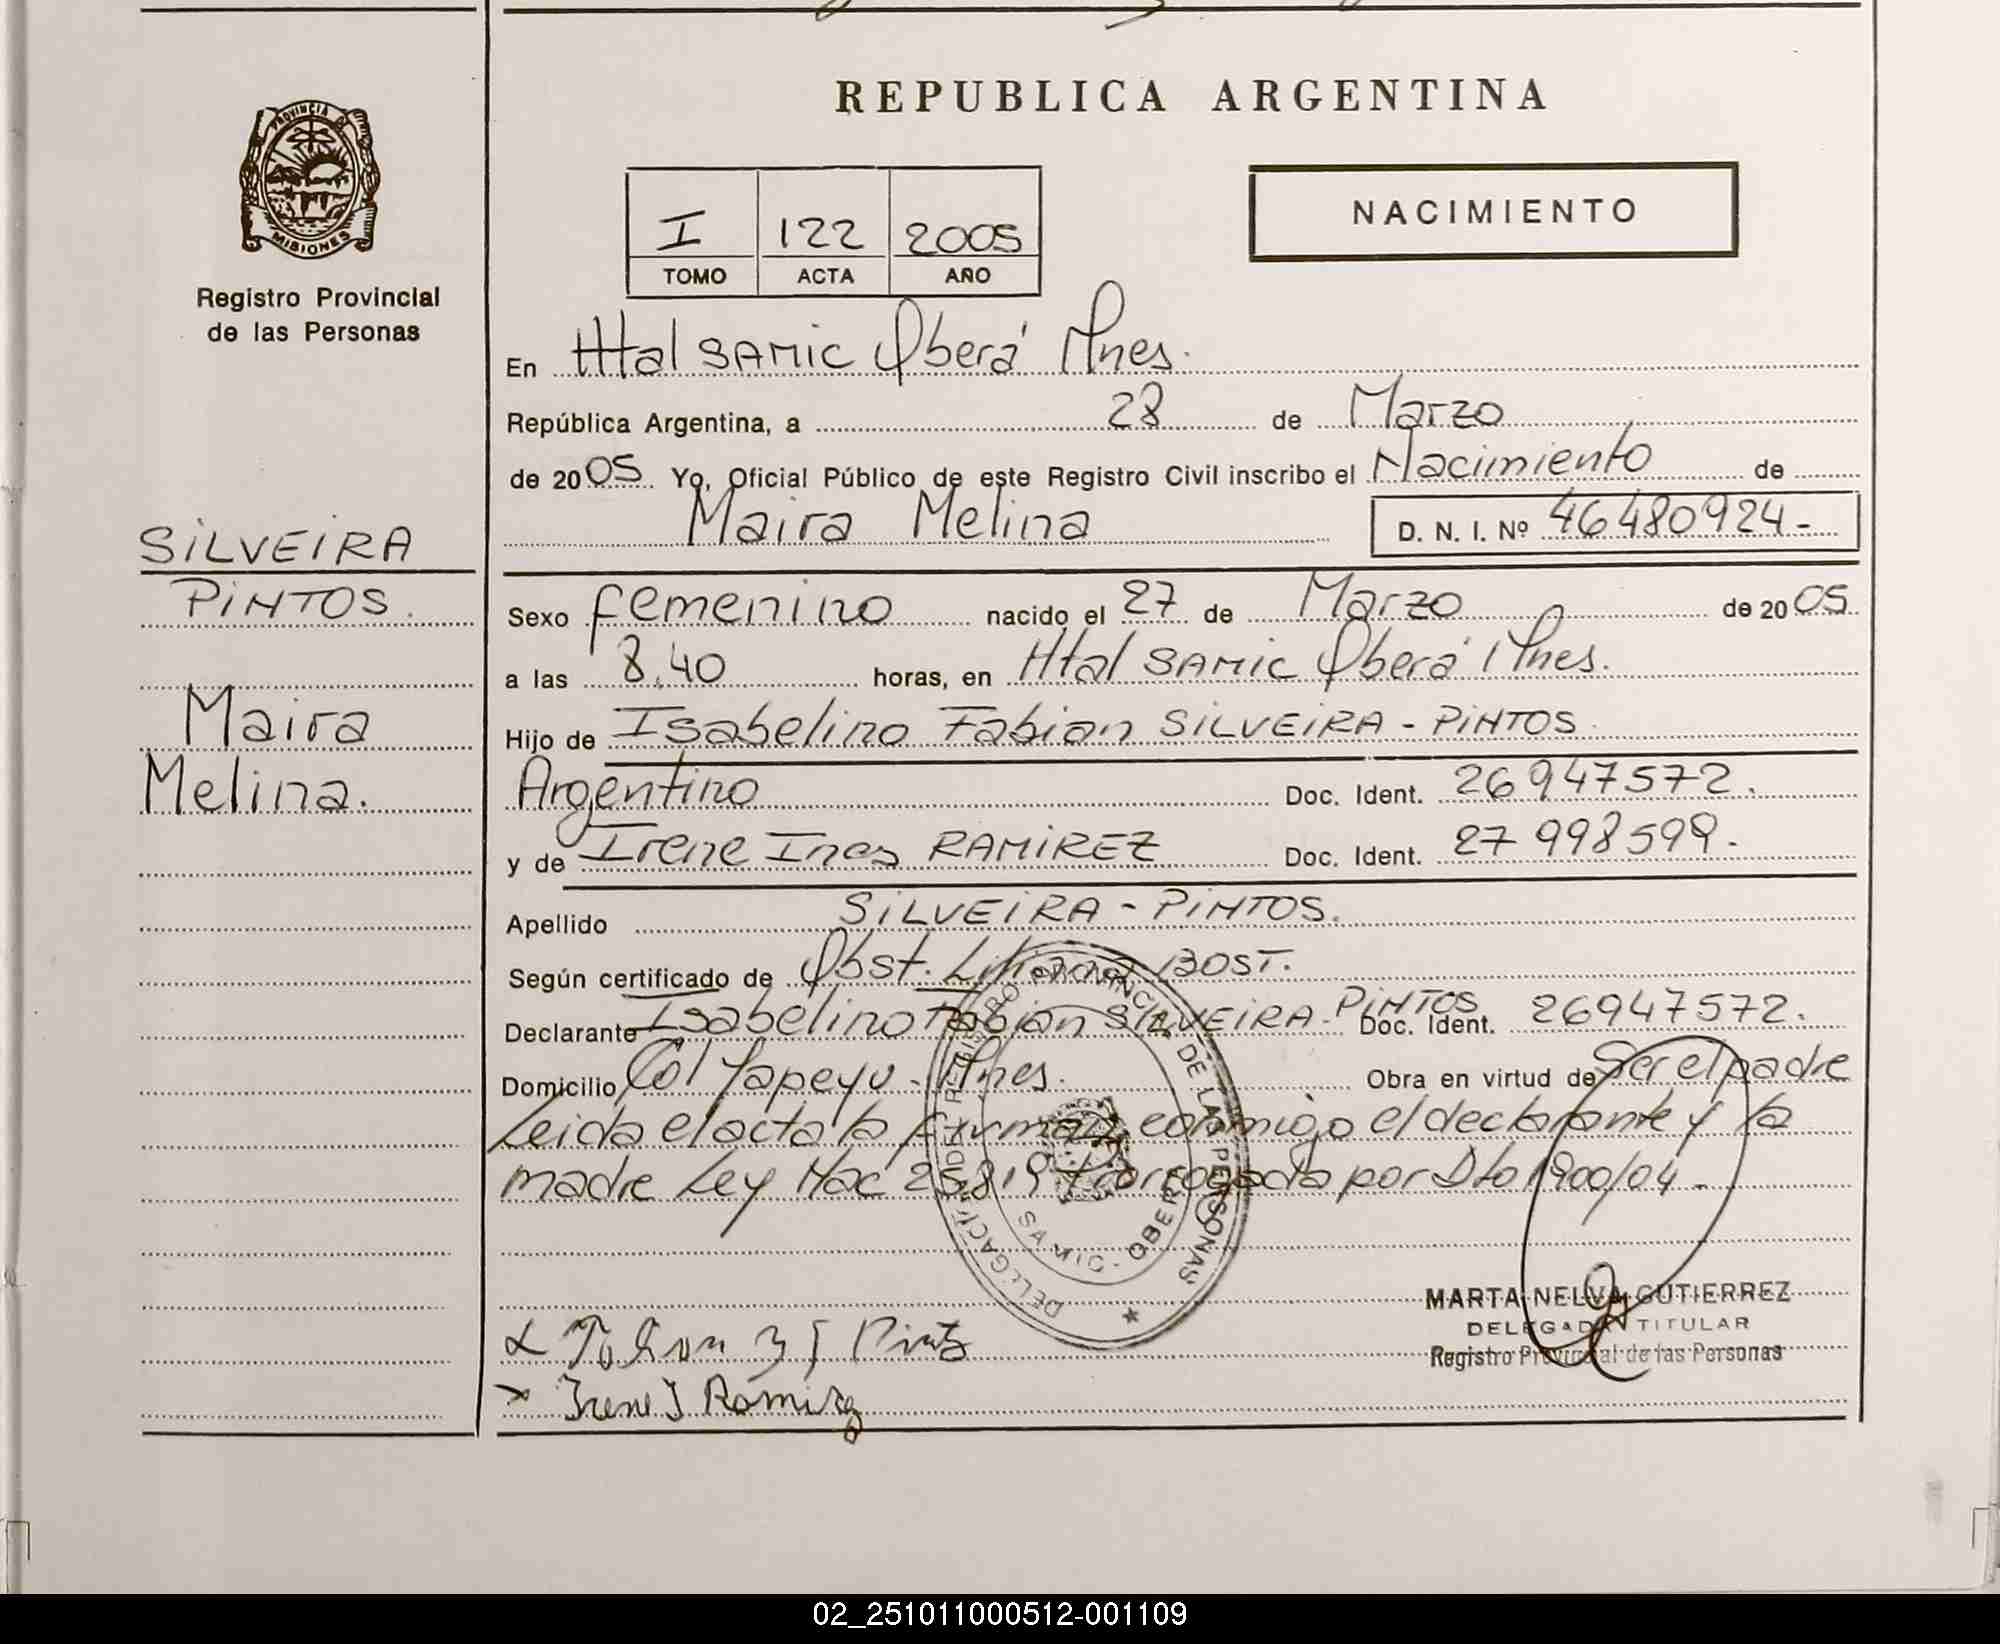 REPUBLICA ARGENTINA
PROVINCIA DE
MISIONES
Registro Provincial
de las Personas
I 122 2005
TOMO ACTA AÑO
NACIMIENTO
En Htal SAMIC Oberá Mnes.
República Argentina, a 28 de Marzo
de 2005 Yo, Oficial Público de este Registro Civil inscribo el Nacimiento de
Maira Melina D. N. I. Nº 46480924-
SILVEIRA
PINTOS.
Maira
Melina.
Sexo femenino nacido el 27 de Marzo de 2005
a las 8,40 horas, en Htal SAMIC Oberá Mnes.
Hijo de Isabelino Fabian SILVEIRA - PINTOS
Argentino Doc. Ident. 26947572.
y de Irene Ines RAMIREZ Doc. Ident. 27998599.
Apellido SILVEIRA - PINTOS.
Según certificado de Obst. Liliana BOST.
Declarante Isabelino Fabian SILVEIRA - PINTOS Doc. Ident. 26947572.
Domicilio Col Yapeyu - Mnes. Obra en virtud de Ser el padre
Leida el acta la firman conmigo el declarante y la
madre Ley Nac 25.819 Prorrogada por Dto 1900/04 -
DELEGACION REGISTRO PROVINCIAL DE LAS PERSONAS
SAMIC - OBERA
MARTA NELVA GUTIERREZ
DELEGADA TITULAR
Registro Provincial de las Personas
Irene I Ramirez
02_251011000512-001109